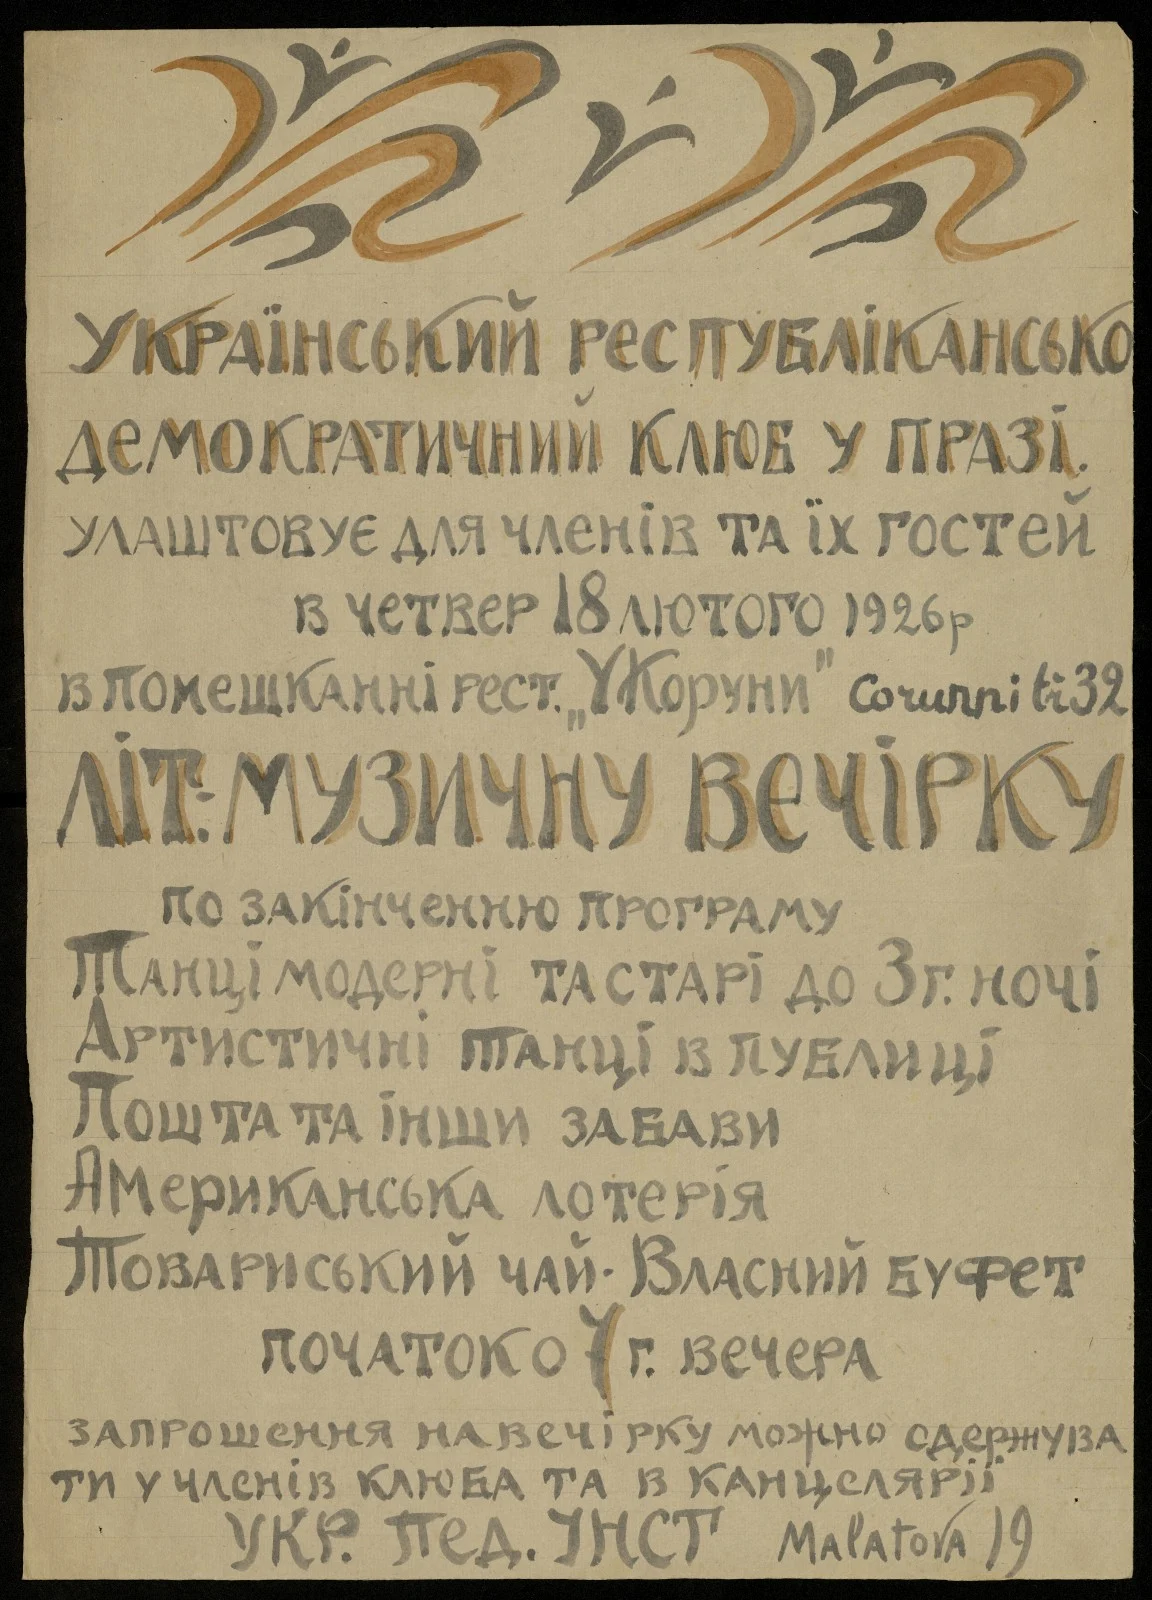 Український Республікансько
Демократичний Клюб у Празі.
улаштовує для членів та їх гостей
в четвер 18 лютого 1926 р
в помешканні рест. „У Коруни" Corunni tř 32
Літ.-Музичну Вечірку
по закінченню програму
Танці модерні та старі до 3 г. ночі
Артистичні танці в публиці
Пошта та інши забави
Американська лотерія
Товариський чай. Власний буфет
початок о 7 г. вечера
запрошення на вечірку можно одержува
ти у членів клюба та в канцелярії
Укр. Пед. Інст Malatova 19